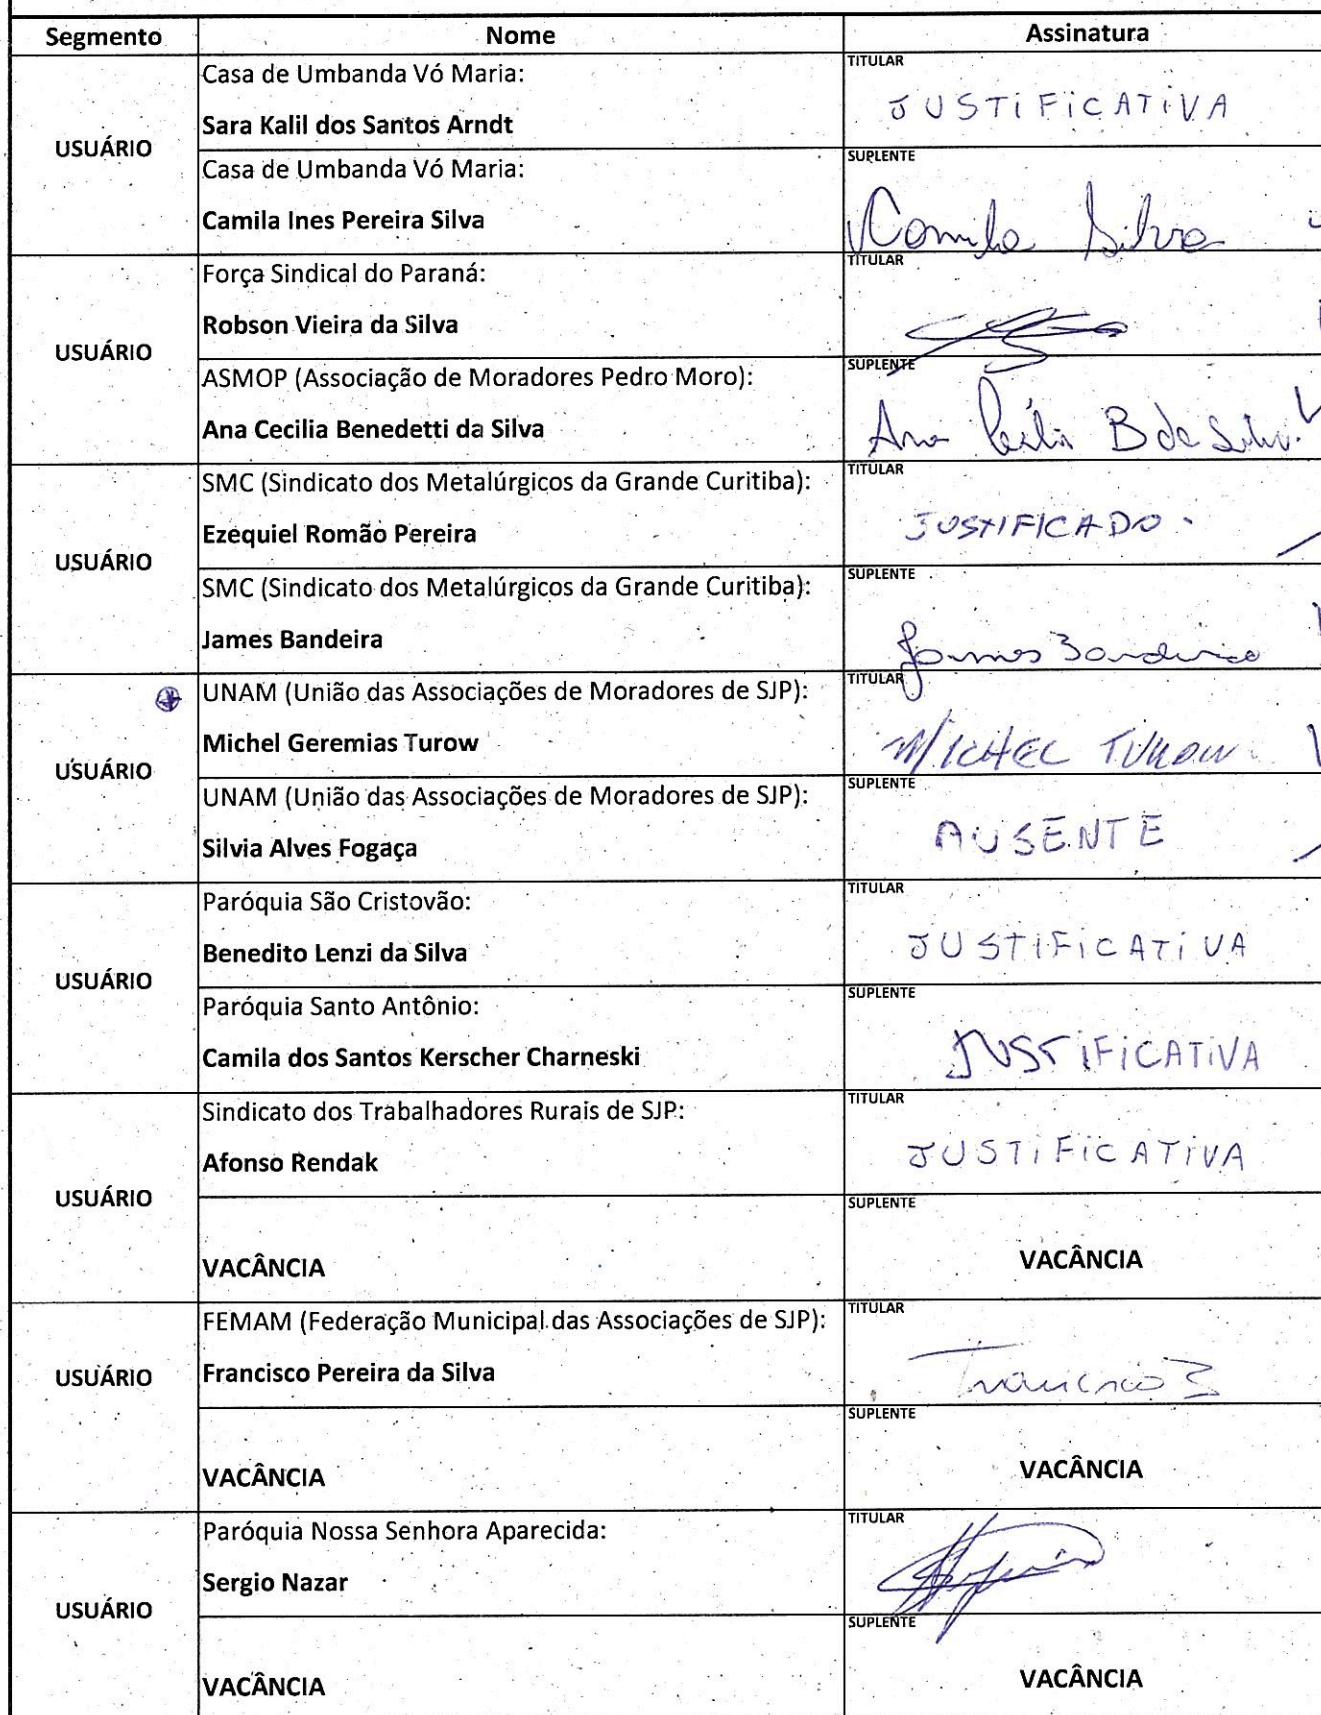 Segmento Nome Assinatura
USUÁRIO
Casa de Umbanda Vó Maria:
Sara Kalil dos Santos Arndt
TITULAR
JUSTIFICATIVA
Casa de Umbanda Vó Maria:
Camila Ines Pereira Silva
SUPLENTE
Camila Silva
USUÁRIO
Força Sindical do Paraná:
Robson Vieira da Silva
TITULAR
ASMOP (Associação de Moradores Pedro Moro):
Ana Cecilia Benedetti da Silva
SUPLENTE
Ana Cecília B da Silva
USUÁRIO
SMC (Sindicato dos Metalúrgicos da Grande Curitiba):
Ezequiel Romão Pereira
TITULAR
JUSTIFICADO.
SMC (Sindicato dos Metalúrgicos da Grande Curitiba):
James Bandeira
SUPLENTE
James Bandeira
USUÁRIO
UNAM (União das Associações de Moradores de SJP):
Michel Geremias Turow
TITULAR
MICHEL TUROW
UNAM (União das Associações de Moradores de SJP):
Silvia Alves Fogaça
SUPLENTE
AUSENTE
USUÁRIO
Paróquia São Cristovão:
Benedito Lenzi da Silva
TITULAR
JUSTIFICATIVA
Paróquia Santo Antônio:
Camila dos Santos Kerscher Charneski
SUPLENTE
JUSTIFICATIVA
USUÁRIO
Sindicato dos Trabalhadores Rurais de SJP:
Afonso Rendak
TITULAR
JUSTIFICATIVA
VACÂNCIA
SUPLENTE
VACÂNCIA
USUÁRIO
FEMAM (Federação Municipal das Associações de SJP):
Francisco Pereira da Silva
TITULAR
Francisco
VACÂNCIA
SUPLENTE
VACÂNCIA
USUÁRIO
Paróquia Nossa Senhora Aparecida:
Sergio Nazar
TITULAR
VACÂNCIA
SUPLENTE
VACÂNCIA